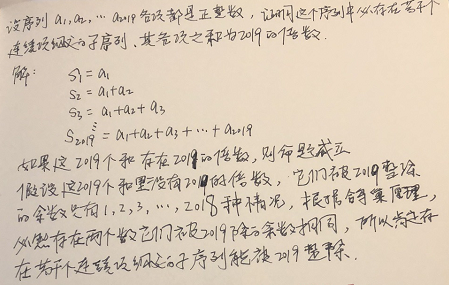 设序列 a₁,a₂,⋯ a₂₀₁₉ 各项都是正整数，证明这个序列中必存在若干个
连续项组成的子序列、其各项之和为2019的倍数.
解：
S₁ = a₁
S₂ = a₁+a₂
S₃ = a₁+a₂+a₃
⋮
S₂₀₁₉ = a₁+a₂+a₃+⋯+a₂₀₁₉
如果这2019个和存在2019的倍数，则命题成立
假设这2019个和里没有2019的倍数，它们被2019整除
的余数只有1,2,3,⋯,2018种情况，根据抽屉原理，
必然存在两个数它们被2019除的余数相同，所以肯定存
在若干个连续项组成的子序列能被2019整除.